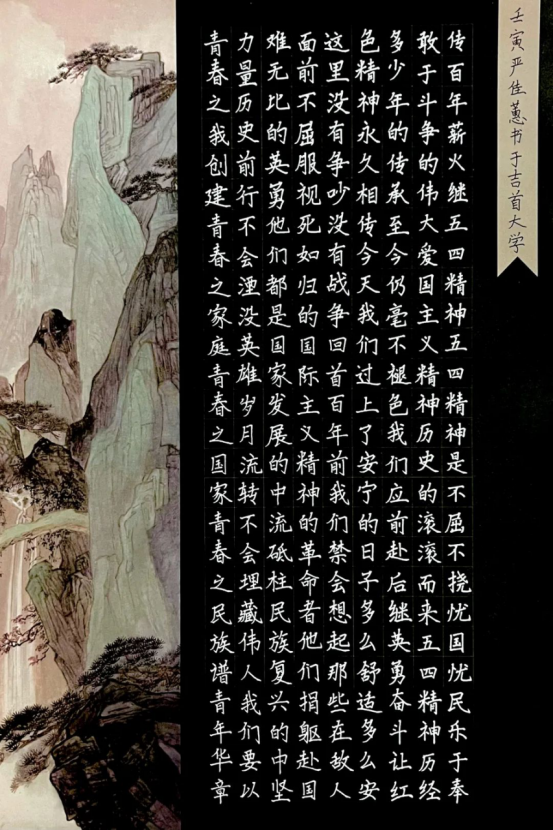 壬寅严佳蕙书于吉首大学
传百年薪火继五四精神五四精神是不屈不挠忧国忧民乐于奉
敢于斗争的伟大爱国主义精神历史的滚滚而来五四精神历经
多少年的传承至今仍毫不褪色我们应前赴后继英勇奋斗让红
色精神永久相传今天我们过上了安宁的日子多么舒适多么安
这里没有争吵没有战争回首百年前我们禁会想起那些在敌人
面前不屈服视死如归的国际主义精神的革命者他们捐躯赴国
难无比的英勇他们都是国家发展的中流砥柱民族复兴的中坚
力量历史前行不会湮没英雄岁月流转不会埋藏伟人我们要以
青春之我创建青春之家庭青春之国家青春之民族谱青年华章